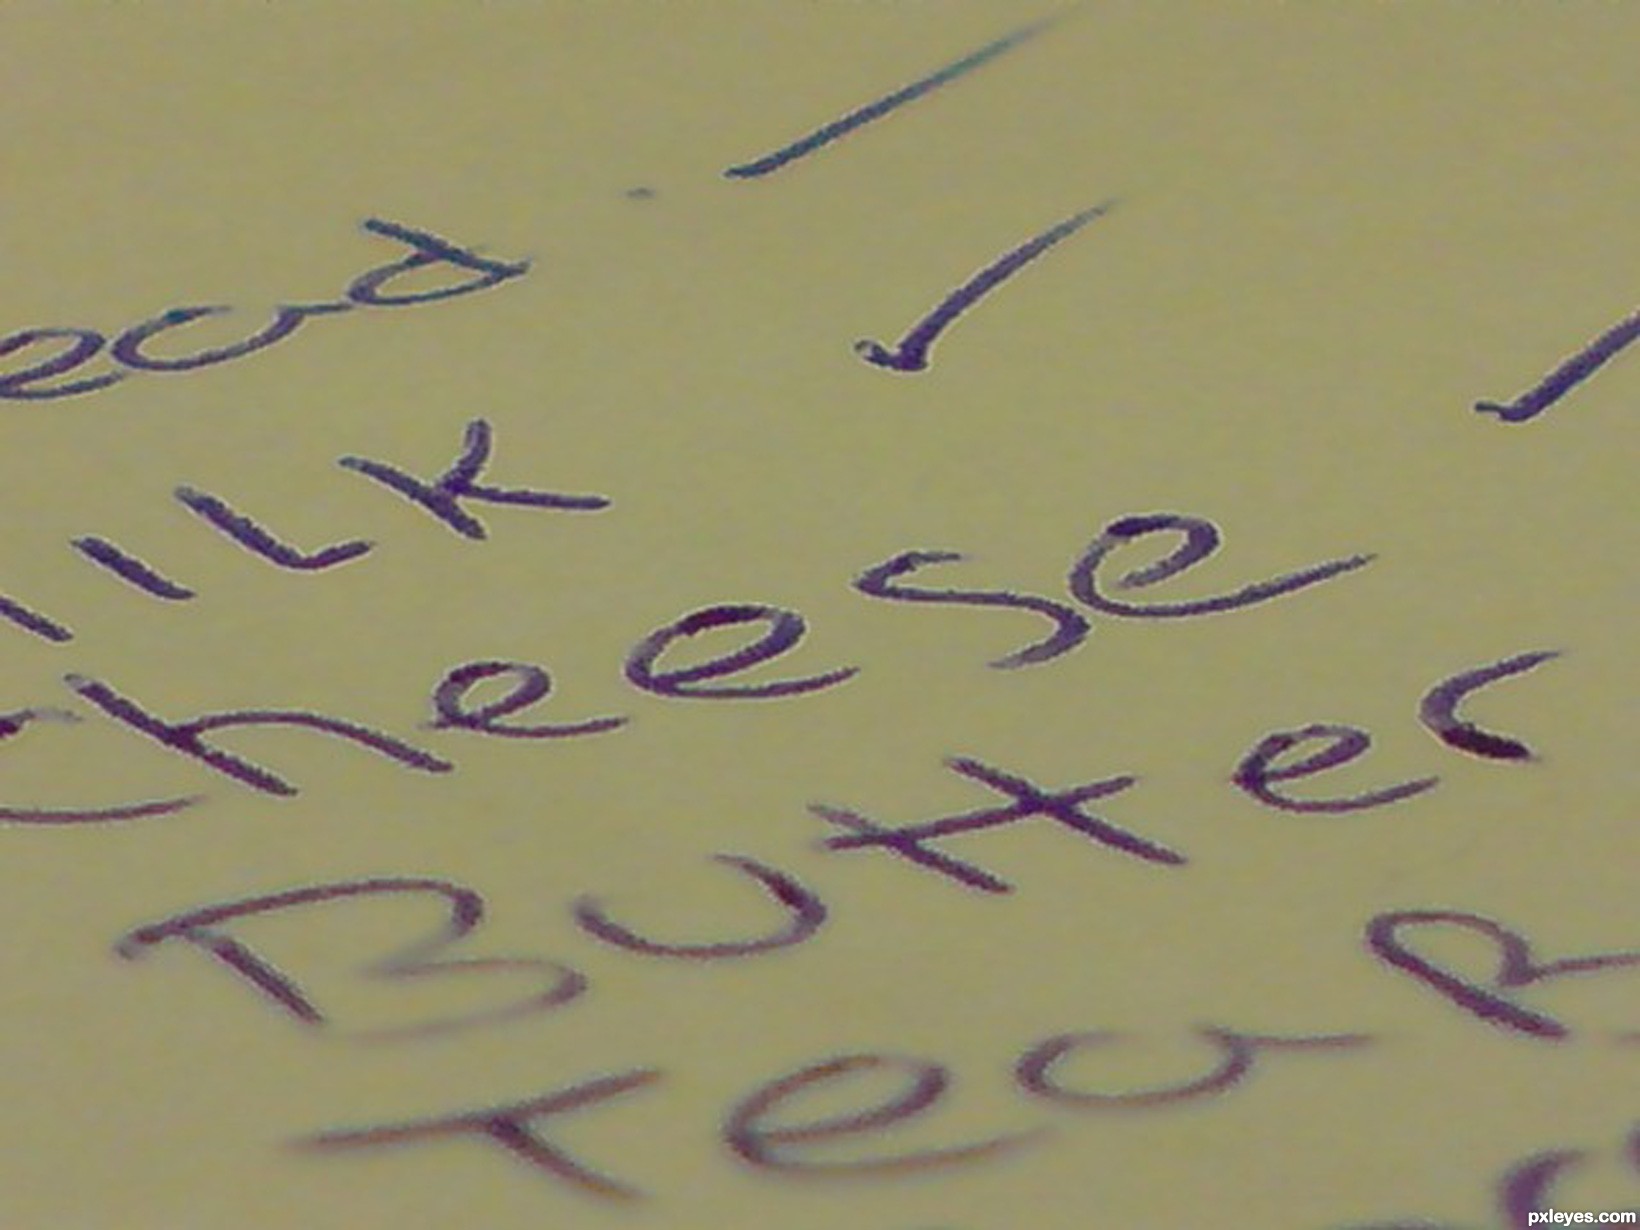 ead
MILK
Cheese
Butter
TeaR
pxleyes.com